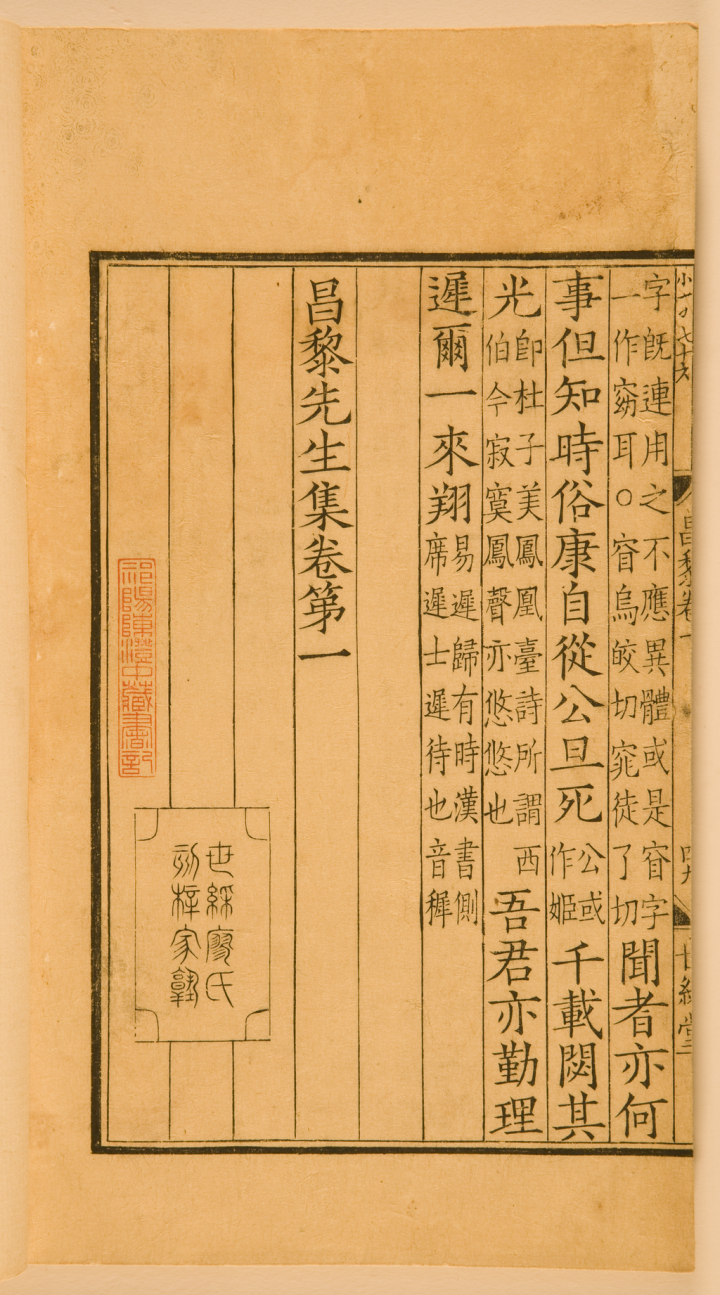 字既連用之不應異體或是窅字
一作窈耳○窅烏皎切窕徒了切
聞者亦何
事但知時俗康自從公旦死
公或
作姬
千載閟其
光
即杜子美鳳凰臺詩所謂西
伯今寂寞鳳聲亦悠悠也
吾君亦勤理
遲爾一來翔
易遲歸有時漢書側
席遲士遲待也音穉
昌黎先生集卷第一
世綵廖氏
刻梓家塾
祁陽陳澄中藏書記
昌黎卷一
世綵堂